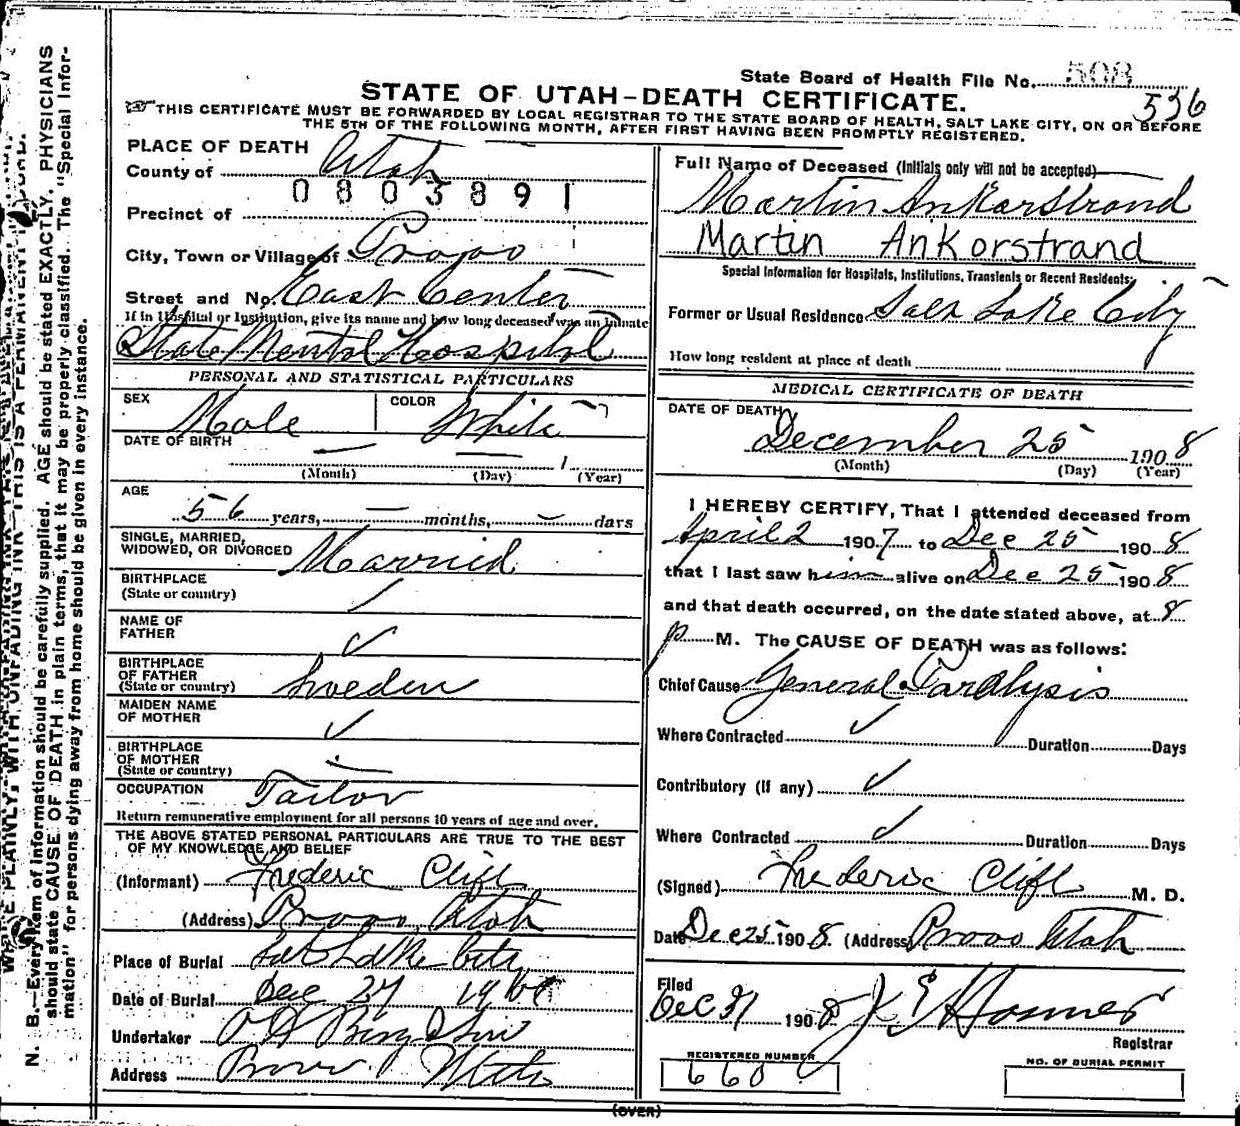 State Board of Health File No. 508
536
STATE OF UTAH-DEATH CERTIFICATE.
THIS CERTIFICATE MUST BE FORWARDED BY LOCAL REGISTRAR TO THE STATE BOARD OF HEALTH, SALT LAKE CITY, ON OR BEFORE
THE 5TH OF THE FOLLOWING MONTH, AFTER FIRST HAVING BEEN PROMPTLY REGISTERED.
PLACE OF DEATH
County of Utah
0803891
Precinct of
City, Town or Village of Provo
Street and No. East Center
If in Hospital or Institution, give its name and how long deceased was an Inmate
State Mental Hospital
PERSONAL AND STATISTICAL PARTICULARS
SEX Male COLOR White
DATE OF BIRTH
1
(Month) (Day) (Year)
AGE
56 years, months, days
SINGLE, MARRIED,
WIDOWED, OR DIVORCED Married
BIRTHPLACE
(State or country)
NAME OF
FATHER
BIRTHPLACE
OF FATHER
(State or country) Sweden
MAIDEN NAME
OF MOTHER
BIRTHPLACE
OF MOTHER
(State or country)
OCCUPATION Tailor
Return remunerative employment for all persons 10 years of age and over.
THE ABOVE STATED PERSONAL PARTICULARS ARE TRUE TO THE BEST
OF MY KNOWLEDGE AND BELIEF
(Informant) Frederic Clift
(Address) Provo, Utah
Place of Burial Salt Lake City
Date of Burial Dec 27 190
Undertaker
Address Provo Utah
Full Name of Deceased (Initials only will not be accepted)
Martin Ankarstrand
Martin Ankorstrand
Special Information for Hospitals, Institutions, Transients or Recent Residents:
Former or Usual Residence Salt Lake City
How long resident at place of death
MEDICAL CERTIFICATE OF DEATH
DATE OF DEATH
December 25 1908
(Month) (Day) (Year)
I HEREBY CERTIFY, That I attended deceased from
April 2 1907 to Dec 25 1908
that I last saw him alive on Dec 25 1908
and that death occurred, on the date stated above, at 8
p M. The CAUSE OF DEATH was as follows:
Chief Cause General Paralysis
Where Contracted Duration Days
Contributory (If any)
Where Contracted Duration Days
(Signed) Frederic Clift M. D.
Date Dec 25 1908. (Address) Provo Utah
Filed
Dec 31 1908 J E Hosmer
Registrar
REGISTERED NUMBER
660
NO. OF BURIAL PERMIT
(OVER)
WRITE PLAINLY, WITH UNFADING INK—THIS IS A PERMANENT RECORD.
N. B.—Every item of information should be carefully supplied. AGE should be stated EXACTLY. PHYSICIANS
should state CAUSE OF DEATH in plain terms, that it may be properly classified. The "Special Infor-
mation" for persons dying away from home should be given in every instance.